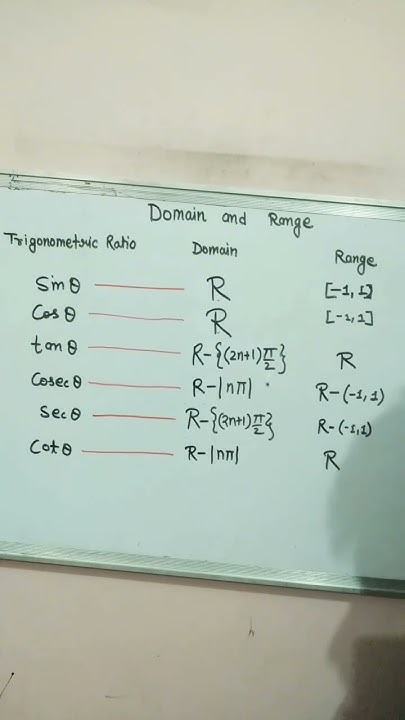 Domain and Range
Trigonometric Ratio Domain Range
Sin θ R [-1, 1]
Cos θ R [-1, 1]
tan θ R-{(2n+1)π/2} R
Cosec θ R-|nπ| R-(-1, 1)
Sec θ R-{(2n+1)π/2} R-(-1,1)
Cot θ R-|nπ| R